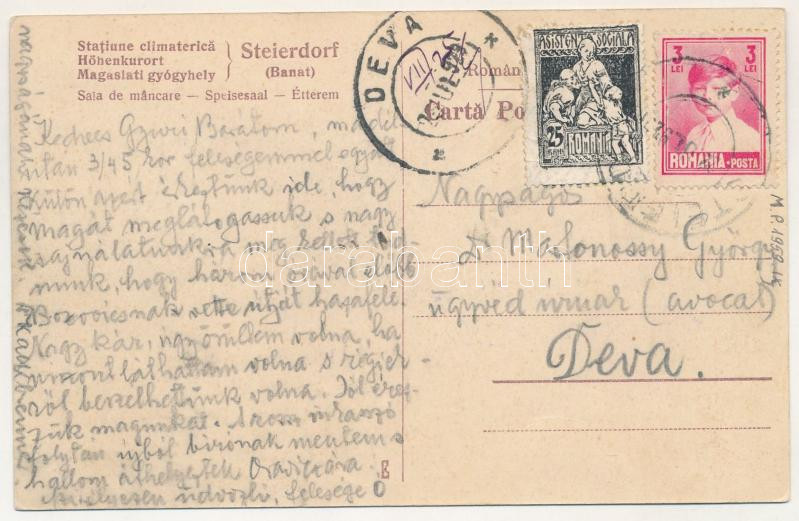 Stațiune climaterică
Höhenkurort
Magaslati gyógyhely
Steierdorf
(Banat)
Sala de mâncare — Speisesaal — Étterem
Român
Carta Po
DEVA
ASISTENȚA SOCIALA
25
BANI
ROMANIA
3 LEI 3 LEI
ROMANIA·POSTA
Kedves Gyuri Barátom,ma dél-
után 3/45 kor feleségemmel együtt
külön azért érkeztünk ide, hogy
magát meglátogassuk s nagy
sajnálatunkra meg kellett tud-
nunk, hogy három órával előbb
Bozovicsnak vette útját hazafelé.
Nagy kár, úgy örültem volna, ha
viszontláthattam volna s régiek-
ről beszélhettünk volna. Jól érez-
zük magunkat.
folytán újból bírónak mentem s
áthelyeztek Oravicára.
Szívesen üdvözli, felesége Ő
nagyságának kézcsók.
Nagyságos
Dr Masonossy György
ügyvéd úrnak (avocat)
Deva.
M.P. 1959. IX
darabanth